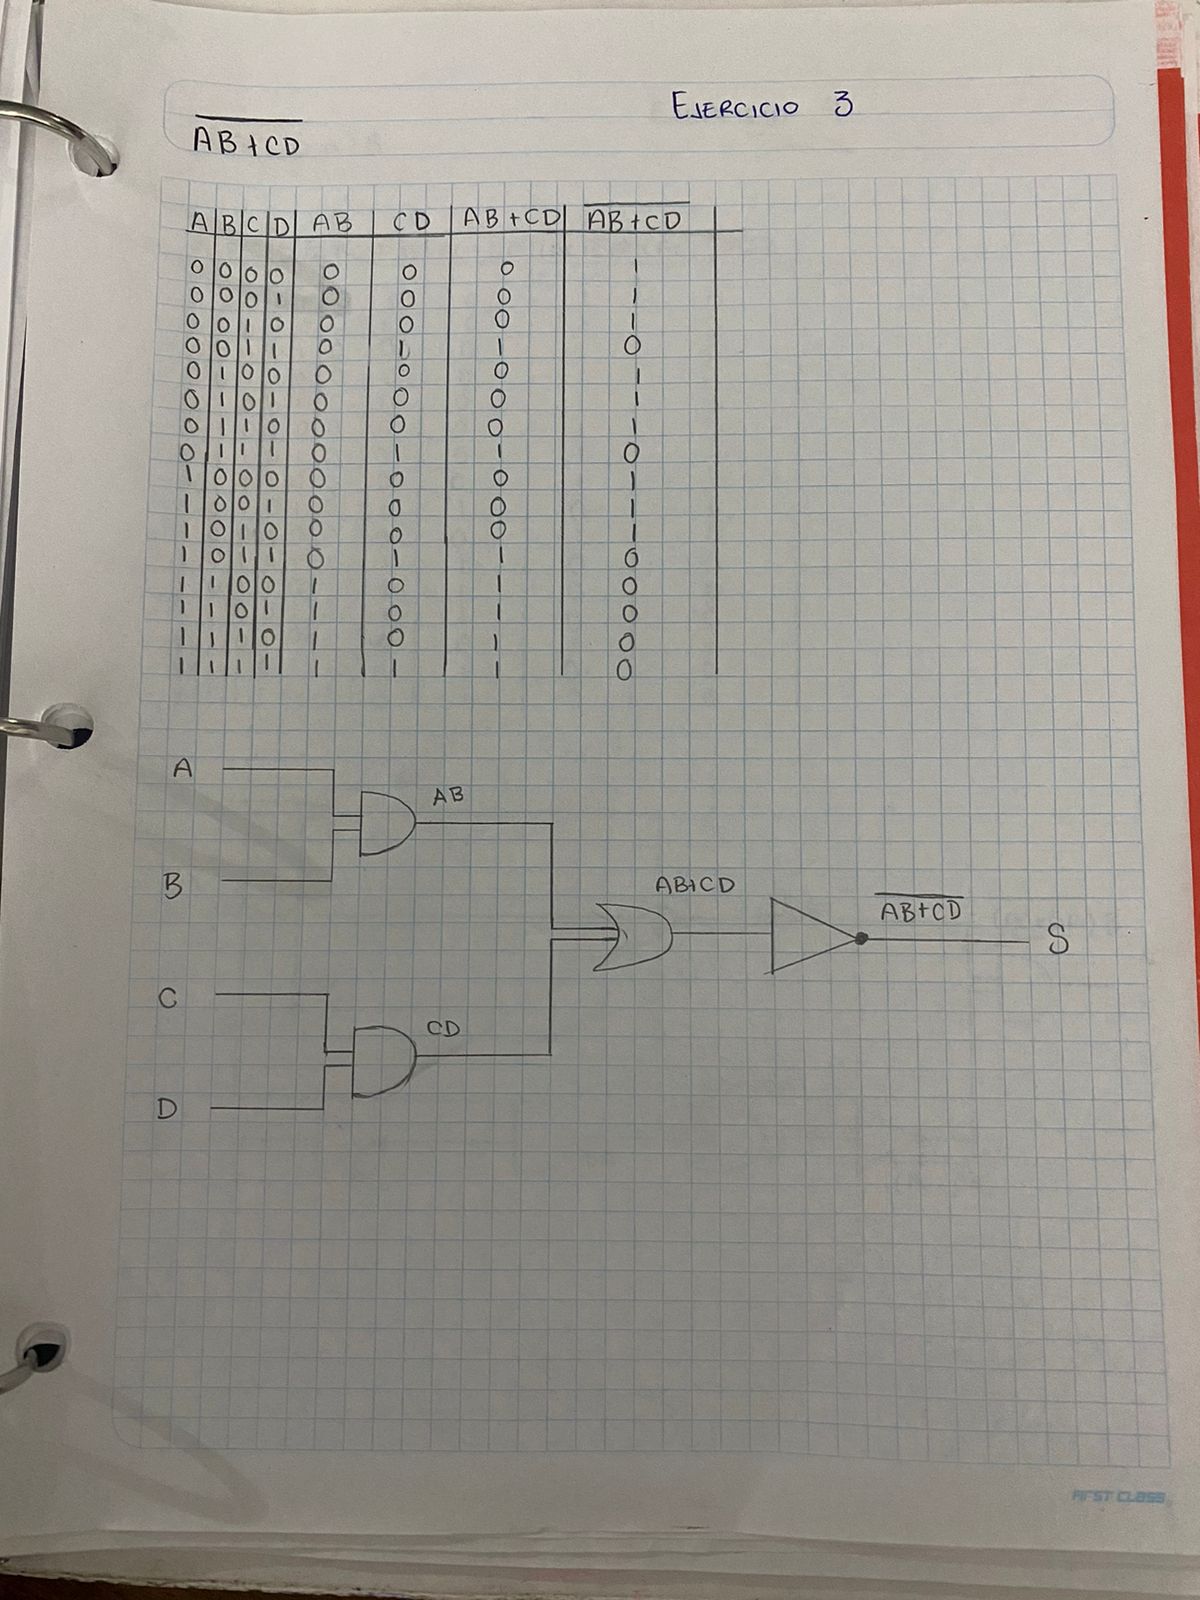 EJERCICIO 3
A̅B̅+̅C̅D̅
A B C D AB CD AB+CD A̅B̅+̅C̅D̅
0 0 0 0 0 0 0 1
0 0 0 1 0 0 0 1
0 0 1 0 0 0 0 1
0 0 1 1 0 1 1 0
0 1 0 0 0 0 0 1
0 1 0 1 0 0 0 1
0 1 1 0 0 0 0 1
0 1 1 1 0 1 1 0
1 0 0 0 0 0 0 1
1 0 0 1 0 0 0 1
1 0 1 0 0 0 0 1
1 0 1 1 0 1 1 0
1 1 0 0 1 0 1 0
1 1 0 1 1 0 1 0
1 1 1 0 1 0 1 0
1 1 1 1 1 1 1 0
A
AB
B
AB+CD
A̅B̅+̅C̅D̅
S
C
CD
D
FIRST CLASS